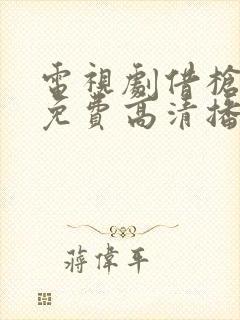 電視劇借槍
免費高清播
蔣偉平